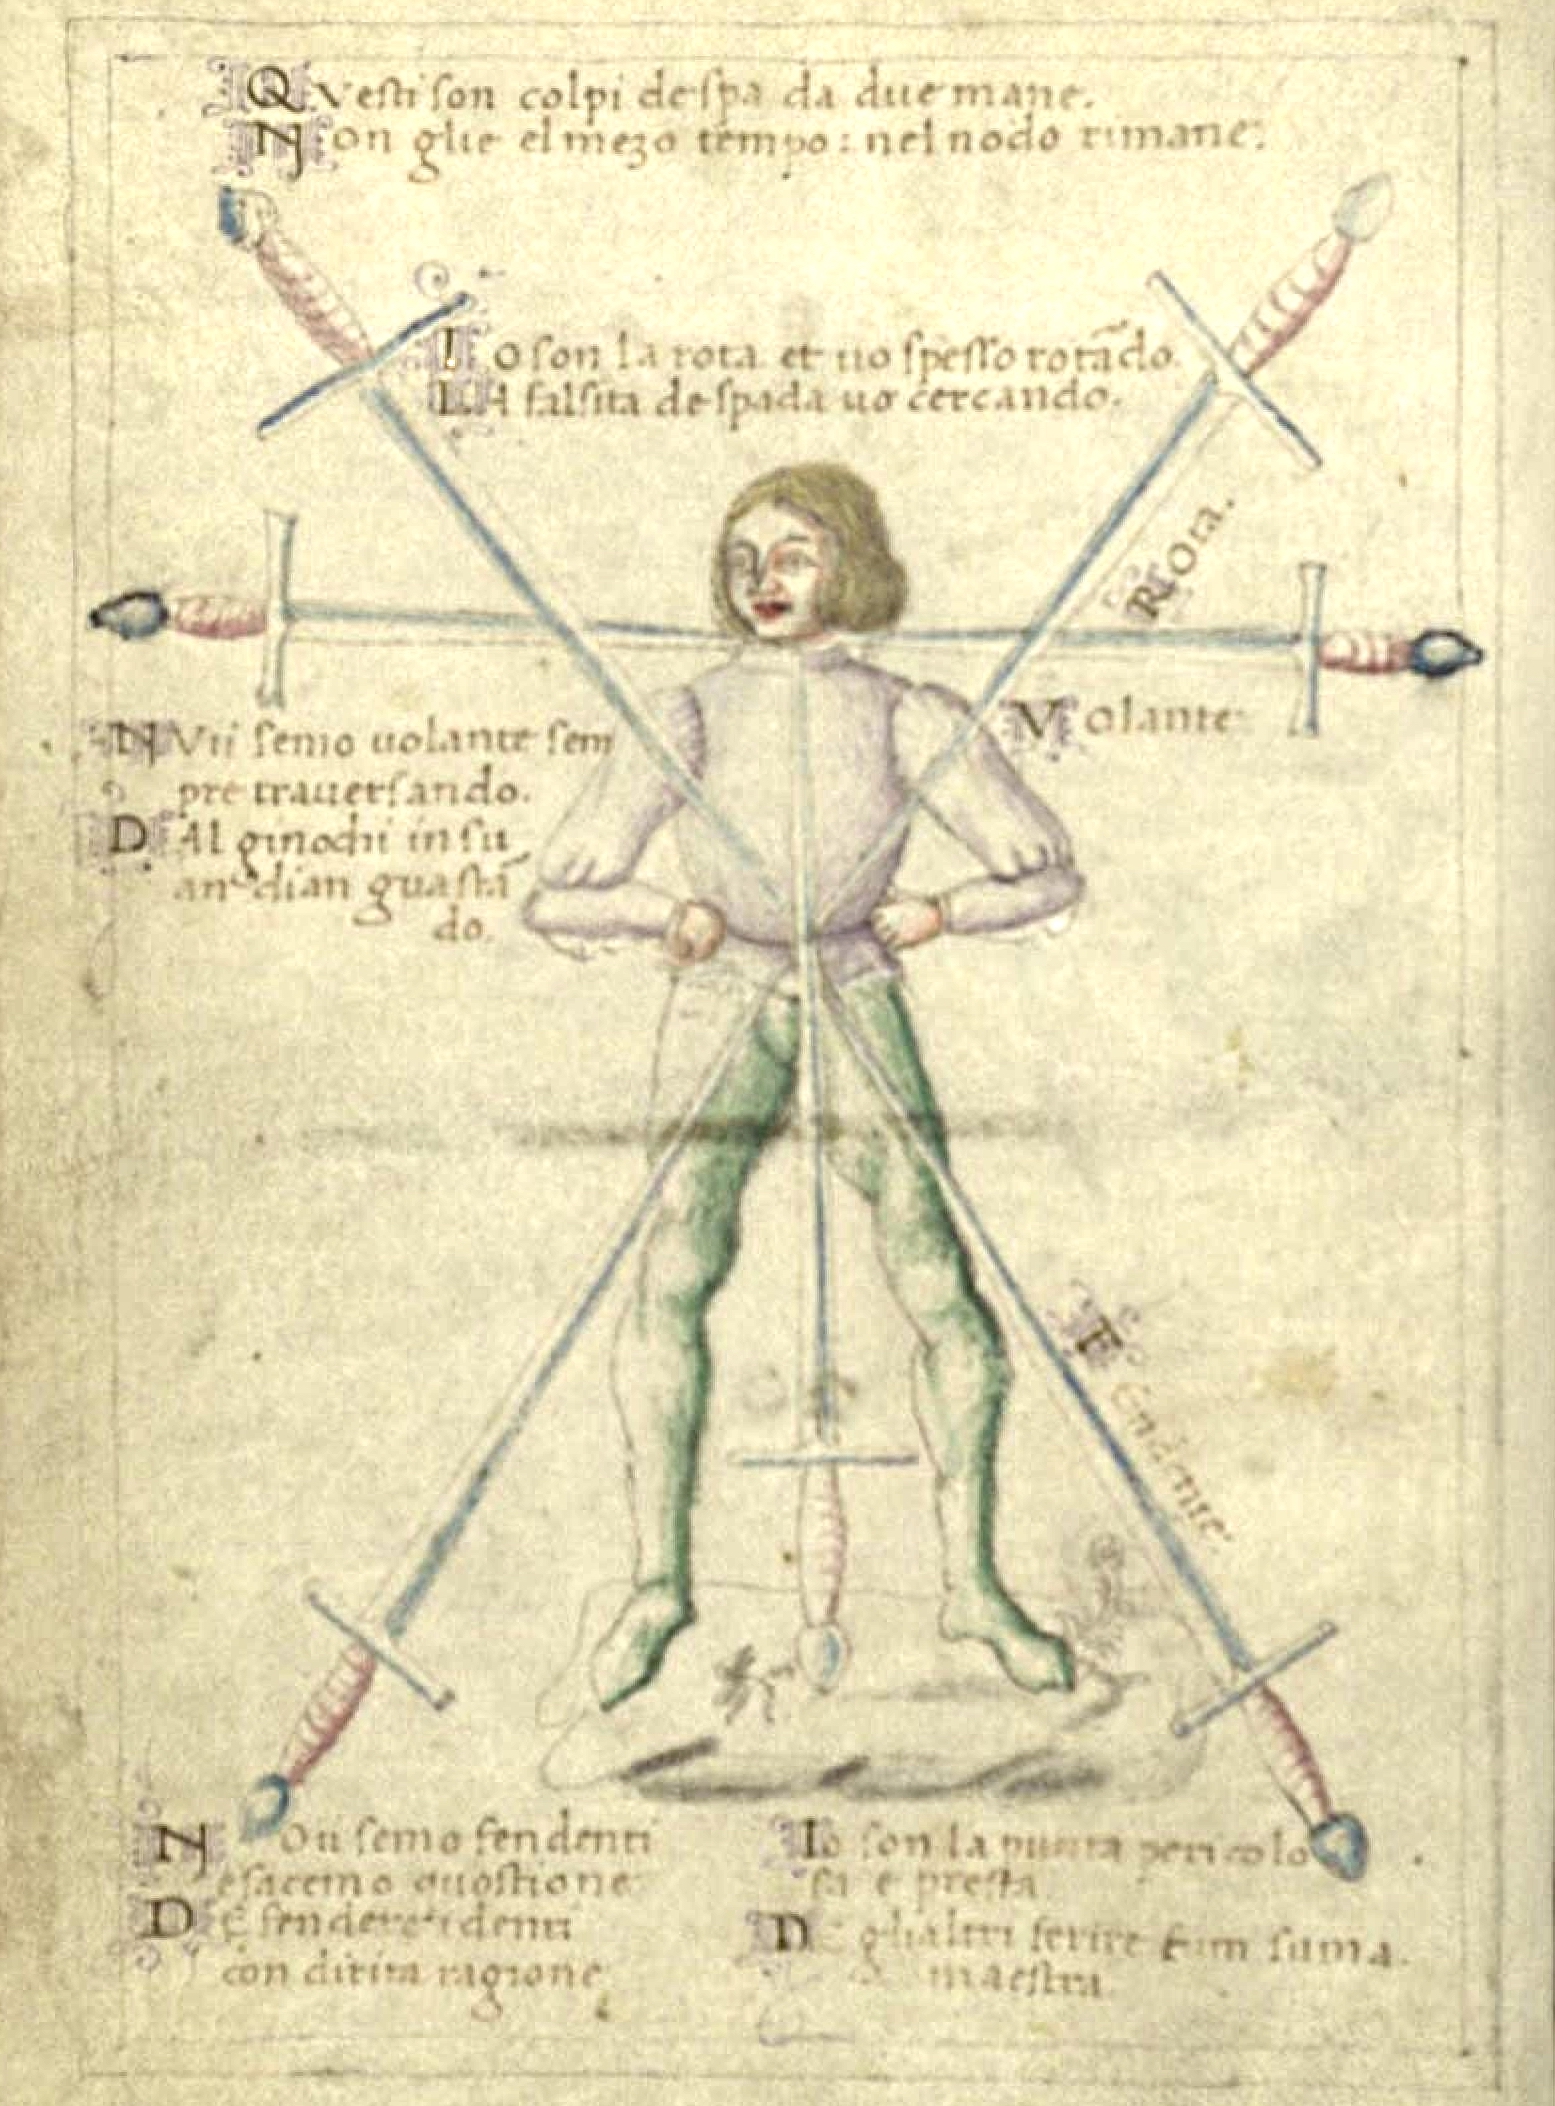 Questi son colpi de spada due mane.
Non glie el mezo tempo: nel nodo rimane:
Io son la rota et uo spesso rotãdo.
LA falsita de spada uo cercando.
Rota.
NVii semo uolante sem
pre trauersando.
DAl ginochi in su
guastã
do.
Volante
Fendente
Noii semo fendenti
e facemo questione
DE fendere i denti
con dirita ragione
Io son la punta pericolo
sa e presta
DE gli altri ferire suma
maestra